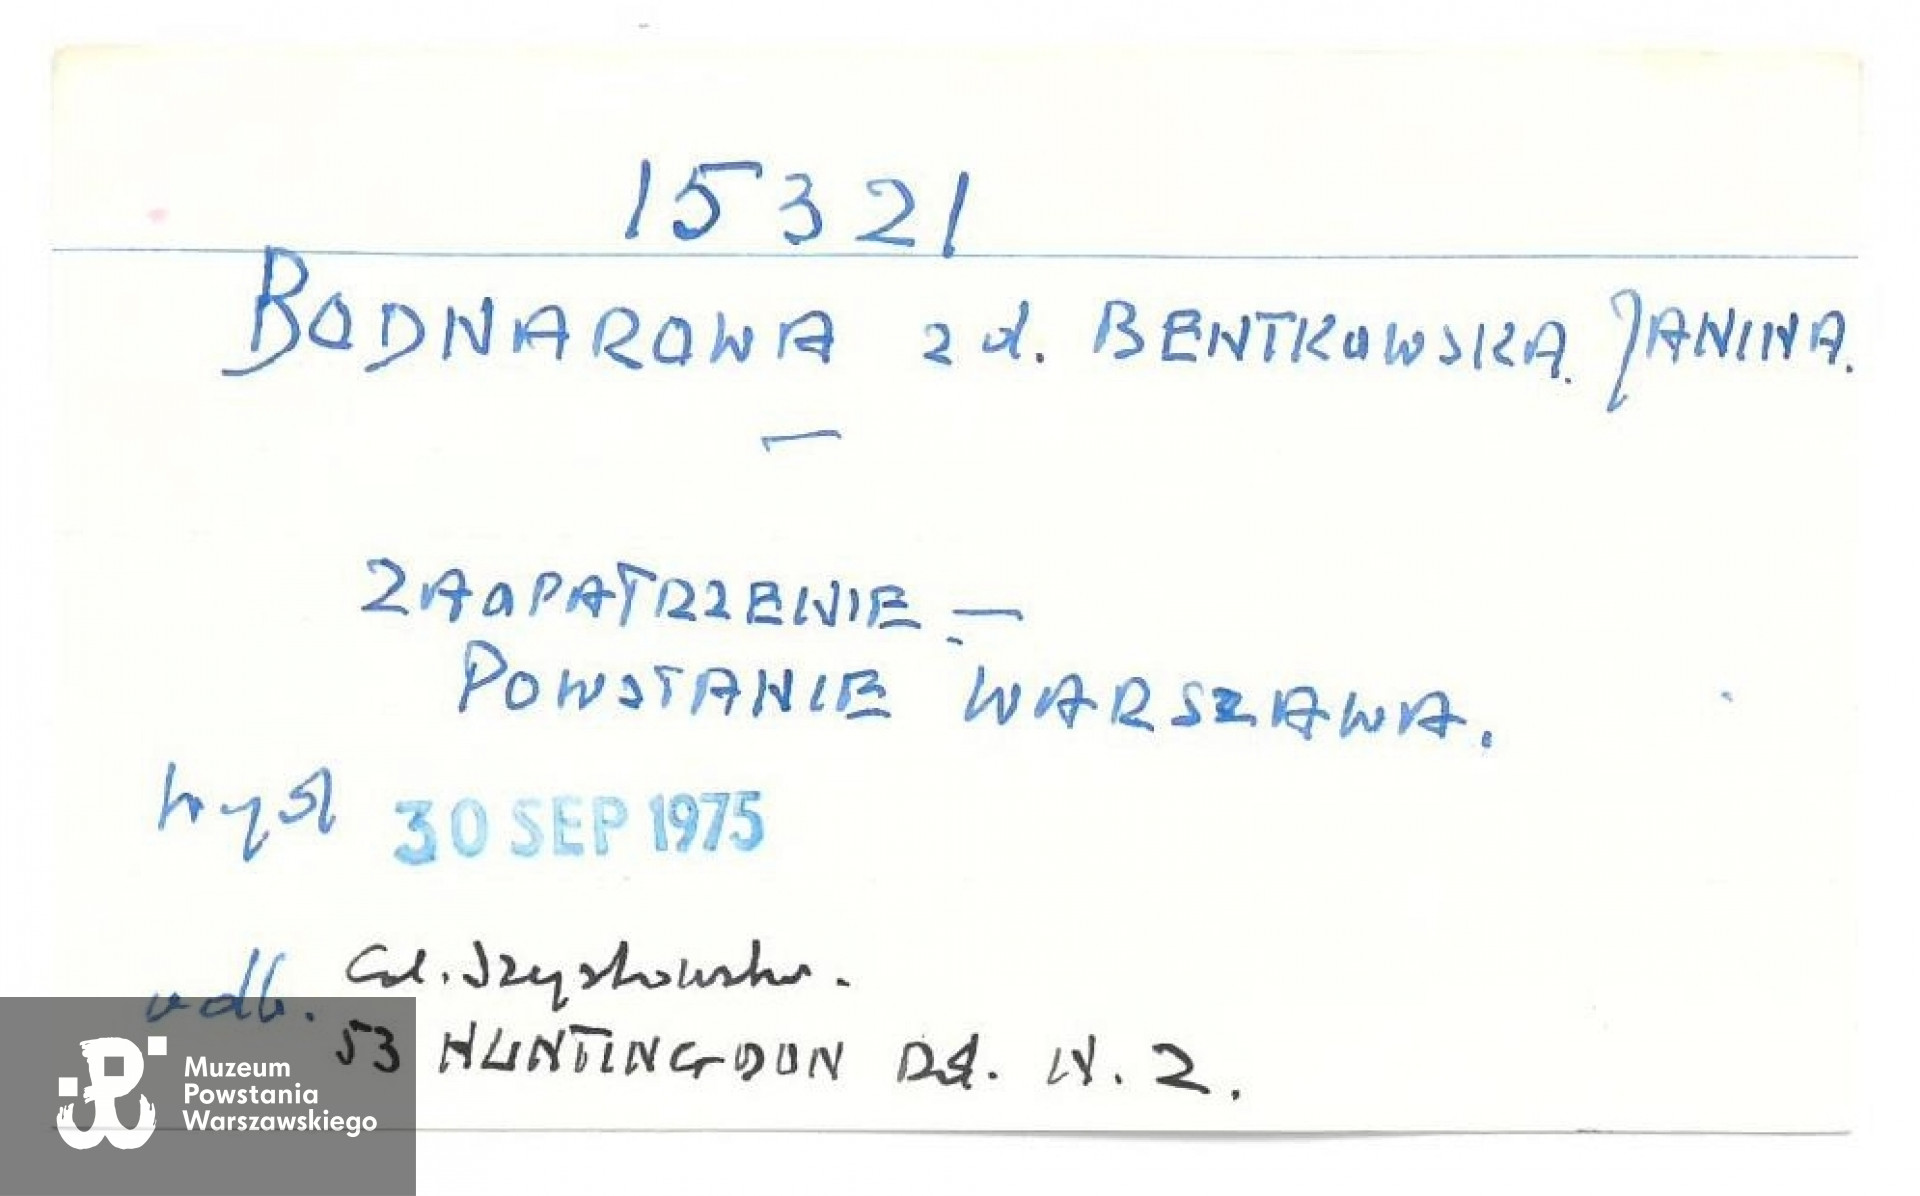 15321
BODNAROWA zd. BENTKOWSKA. JANINA.
—
ZAOPATRZENIE —
POWSTANIE WARSZAWA.
wysł 30 SEP 1975
odb.
53 HUNTINGDON Rd. N. 2.
Muzeum
Powstania
Warszawskiego